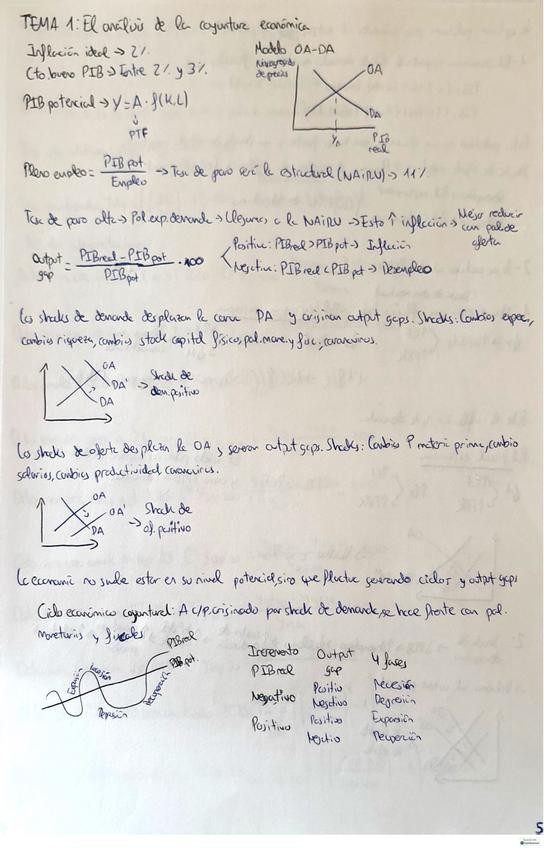 TEMA 1: El análisis de la coyuntura económica
Inflación ideal → 2%
Cto bueno PIB → Entre 2% y 3%
PIB potencial → Y = A · f(K,L)
↓
PTF
Modelo OA-DA
Nivel general de precios
OA
DA
PIB real
Pleno empleo = PIB pot / Empleo → Tasa de paro será la estructural (NAIRU) → 11%
Tasa de paro alta → Pol. exp. demanda → Llegamos a la NAIRU → Esto ↑ inflación → Mejor reducir con pol. de oferta
Output gap = PIB real - PIB pot / PIB pot · 100
Positivo: PIB real > PIB pot → Inflación
Negativo: PIB real < PIB pot → Desempleo
Los shocks de demanda desplazan la curva DA y originan output gaps. Shocks: Cambios expec.,
cambios riqueza, cambios stock capital físico, pol. mone. y fisc., coronavirus.
OA
DA'
DA
→ Shock de dem. positivo
Los shocks de oferta desplaza la OA y generan output gaps. Shocks: Cambios P materia prima, cambio
salarios, cambios productividad, coronavirus.
OA
OA'
DA
→ Shock de of. positivo
La economía no suele estar en su nivel potencial, sino que fluctúa generando ciclos y output gaps
Ciclo económico coyuntural: A c/p. originado por shock de demanda, se hace frente con pol.
monetarias y fiscales
PIB real
PIB pot
Expansión
Recesión
Depresión
Recuperación
Incremento PIB real
Output gap
4 fases
Negativo
Positivo
Recesión
Negativo
Depresión
Positivo
Positivo
Expansión
Negativo
Recuperación
5